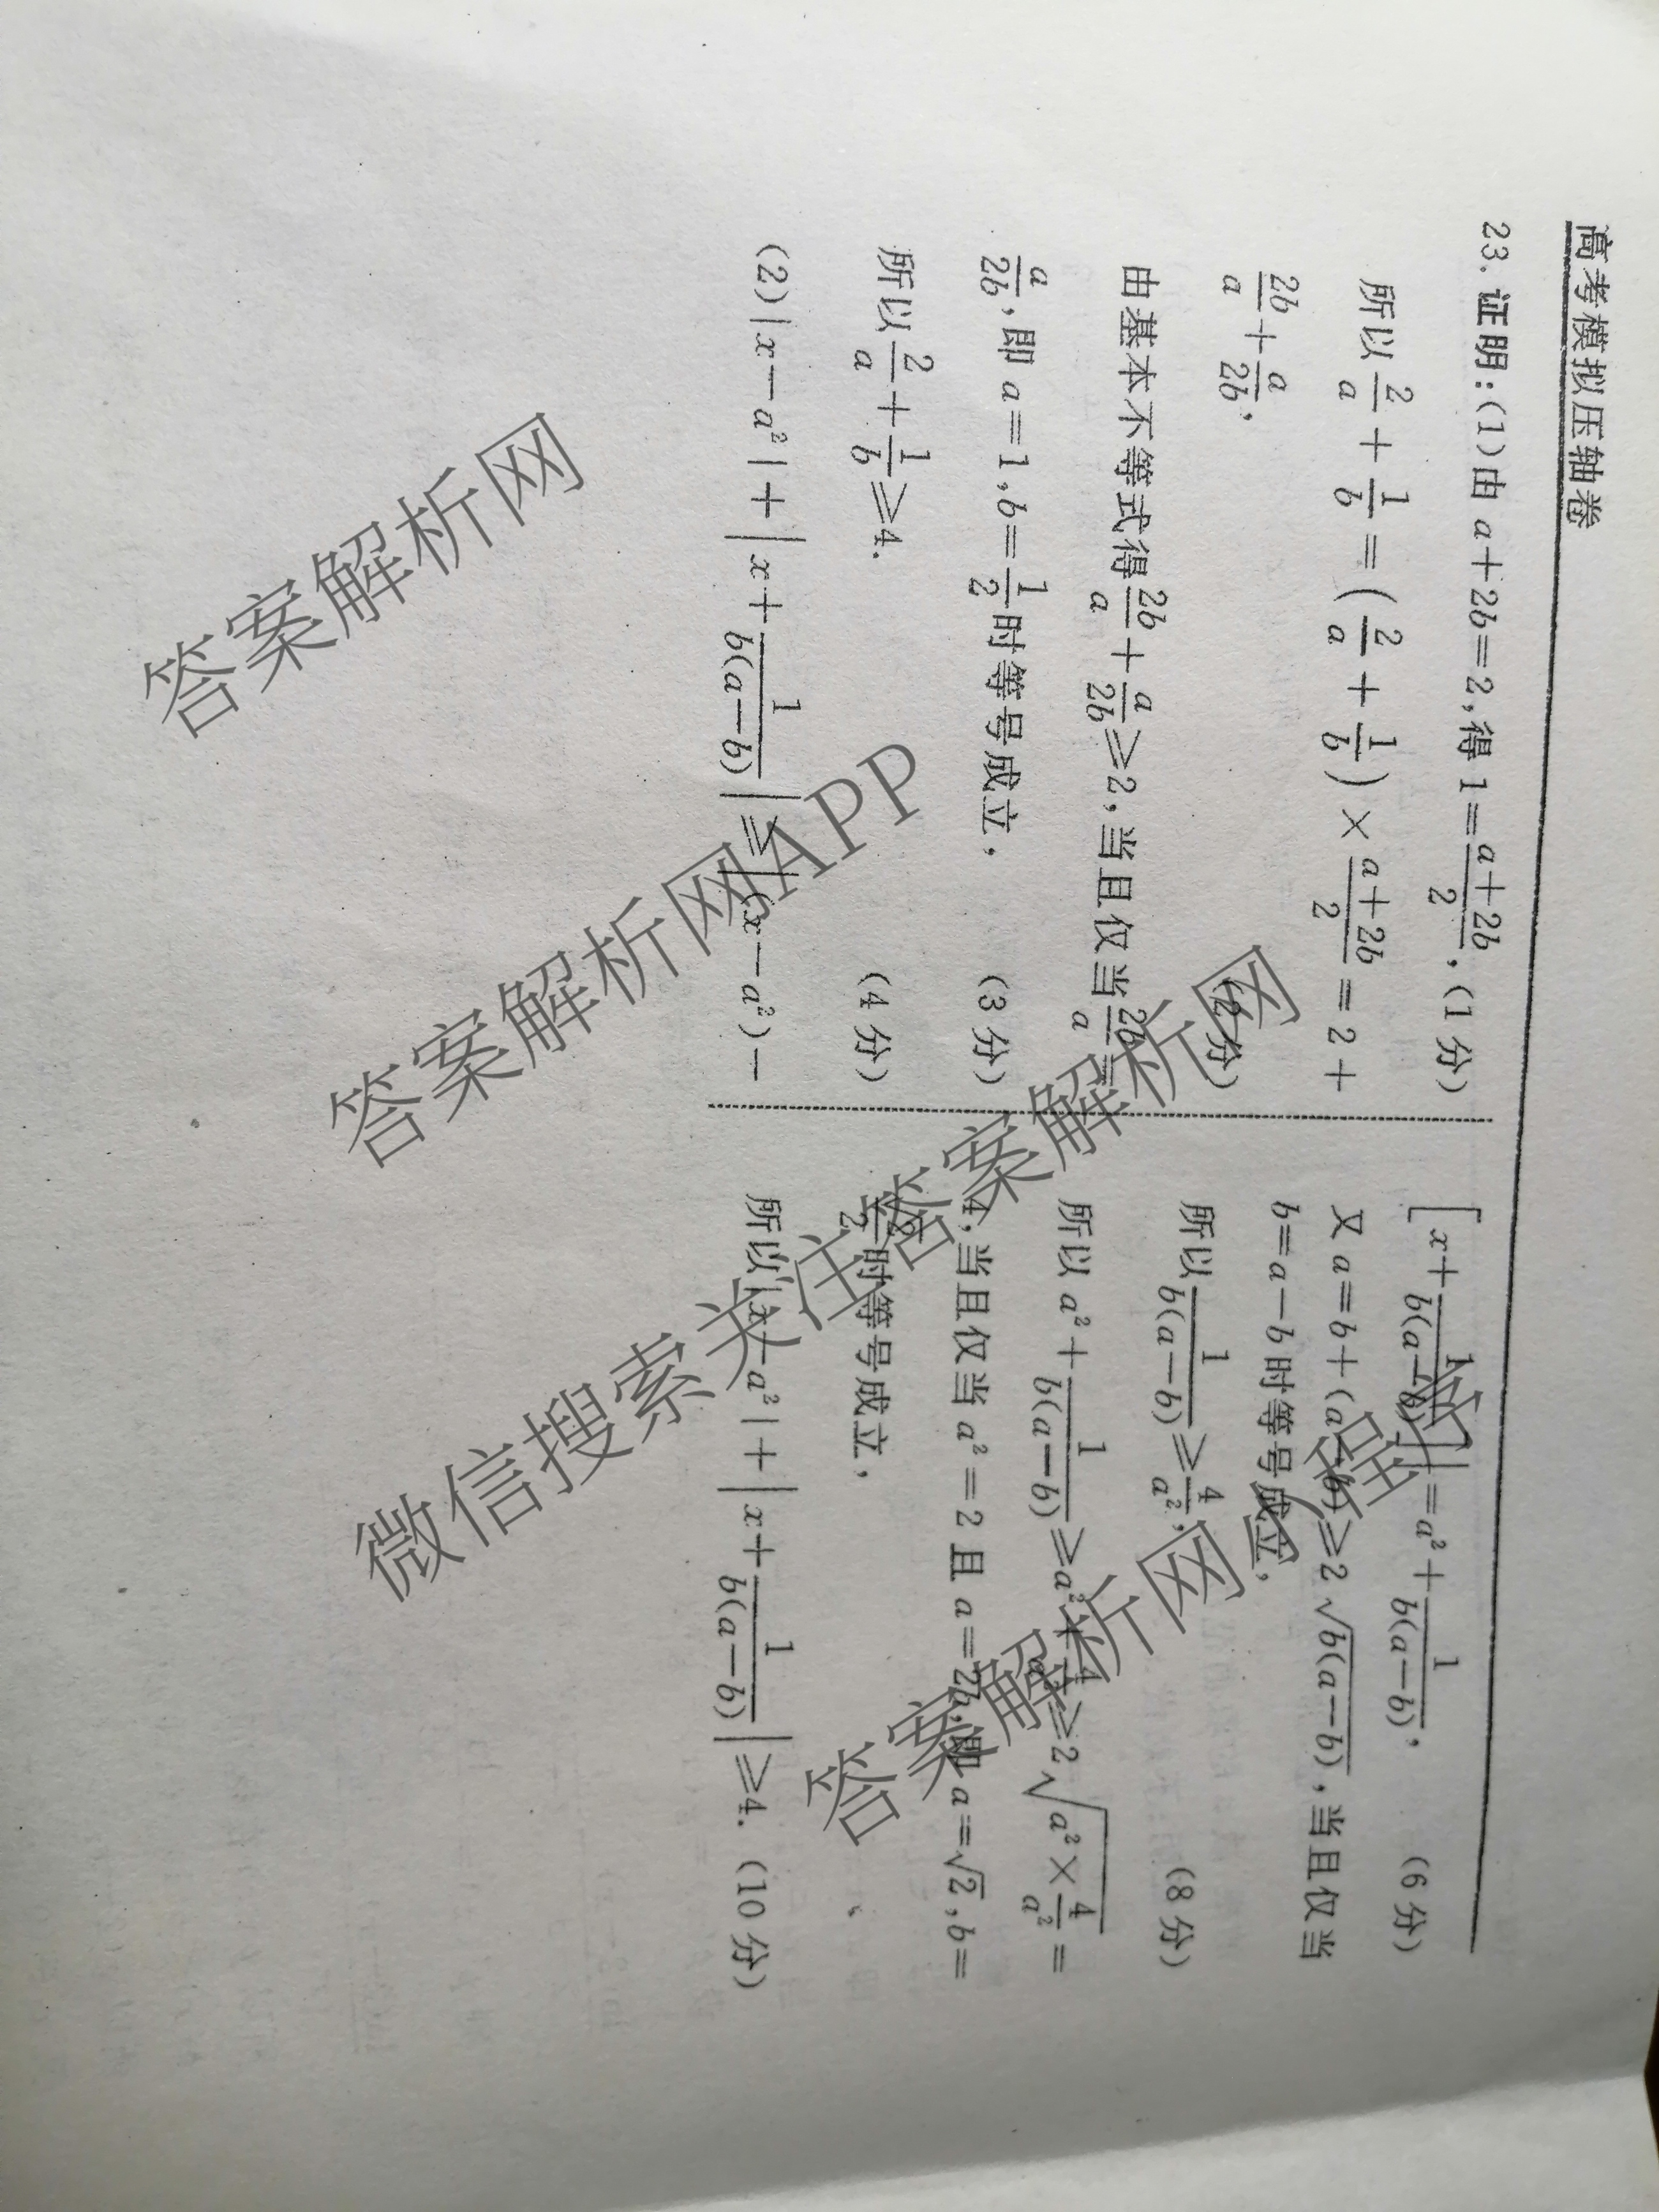 高考模拟压轴卷
23.证明:(1)由 a+2b=2,得 1=\frac{a+2b}{2},(1分)
所以\frac{2}{a}+\frac{1}{b}=(\frac{2}{a}+\frac{1}{b})×\frac{a+2b}{2}=2+
\frac{2b}{a}+\frac{a}{2b}, (2分)
由基本不等式得\frac{2b}{a}+\frac{a}{2b}≥2,当且仅当\frac{2b}{a}=
\frac{a}{2b},即 a=1,b=\frac{1}{2}时等号成立, (3分)
所以\frac{2}{a}+\frac{1}{b}≥4. (4分)
(2)|x-a²|+|x+\frac{1}{b(a-b)}|≥|(x-a²)-
[x+\frac{1}{b(a-b)}]|=a²+\frac{1}{b(a-b)}, (6分)
又 a=b+(a-b)≥2\sqrt{b(a-b)},当且仅当
b=a-b 时等号成立,
所以\frac{1}{b(a-b)}≥\frac{4}{a²}, (8分)
所以 a²+\frac{1}{b(a-b)}≥a²+\frac{4}{a²}≥2\sqrt{a²×\frac{4}{a²}}=
4,当且仅当 a²=2 且 a=2b,即 a=\sqrt{2},b=
\frac{\sqrt{2}}{2}时等号成立,
所以|x-a²|+|x+\frac{1}{b(a-b)}|≥4. (10分)
答案解析网
答案解析网APP
微信搜索关注答案解析网
答案解析网小程序